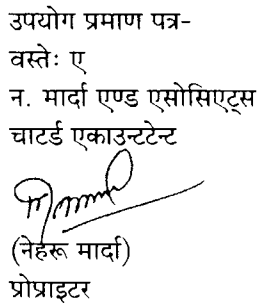 उपयोग प्रमाण पत्र-
वस्तेः ए
न. मार्दा एण्ड एसोसिएट्स
चाटर्ड एकाउन्टटेन्ट
(नेहरू मार्दा)
प्रोप्राइटर